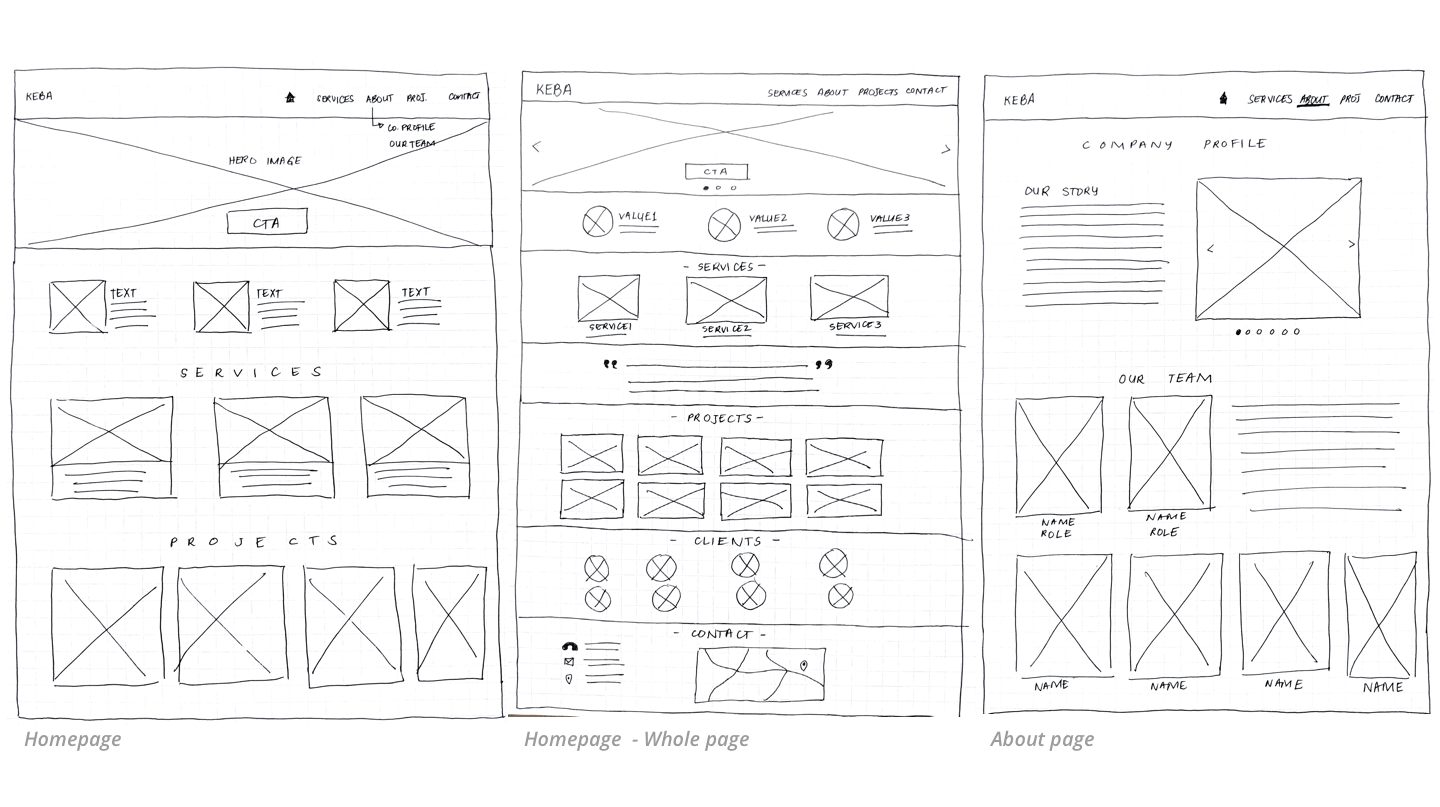 KEBA
SERVICES ABOUT PROJ. CONTACT
CO. PROFILE
OUR TEAM
HERO IMAGE
CTA
TEXT TEXT TEXT
SERVICES
PROJECTS
Homepage
KEBA
SERVICES ABOUT PROJECTS CONTACT
< >
CTA
VALUE1 VALUE2 VALUE3
- SERVICES -
SERVICE1 SERVICE2 SERVICE3
“ ”
- PROJECTS -
- CLIENTS -
- CONTACT -
Homepage - Whole page
KEBA
SERVICES ABOUT PROJ CONTACT
COMPANY PROFILE
OUR STORY
< >
OUR TEAM
NAME NAME
ROLE ROLE
NAME NAME NAME NAME
About page